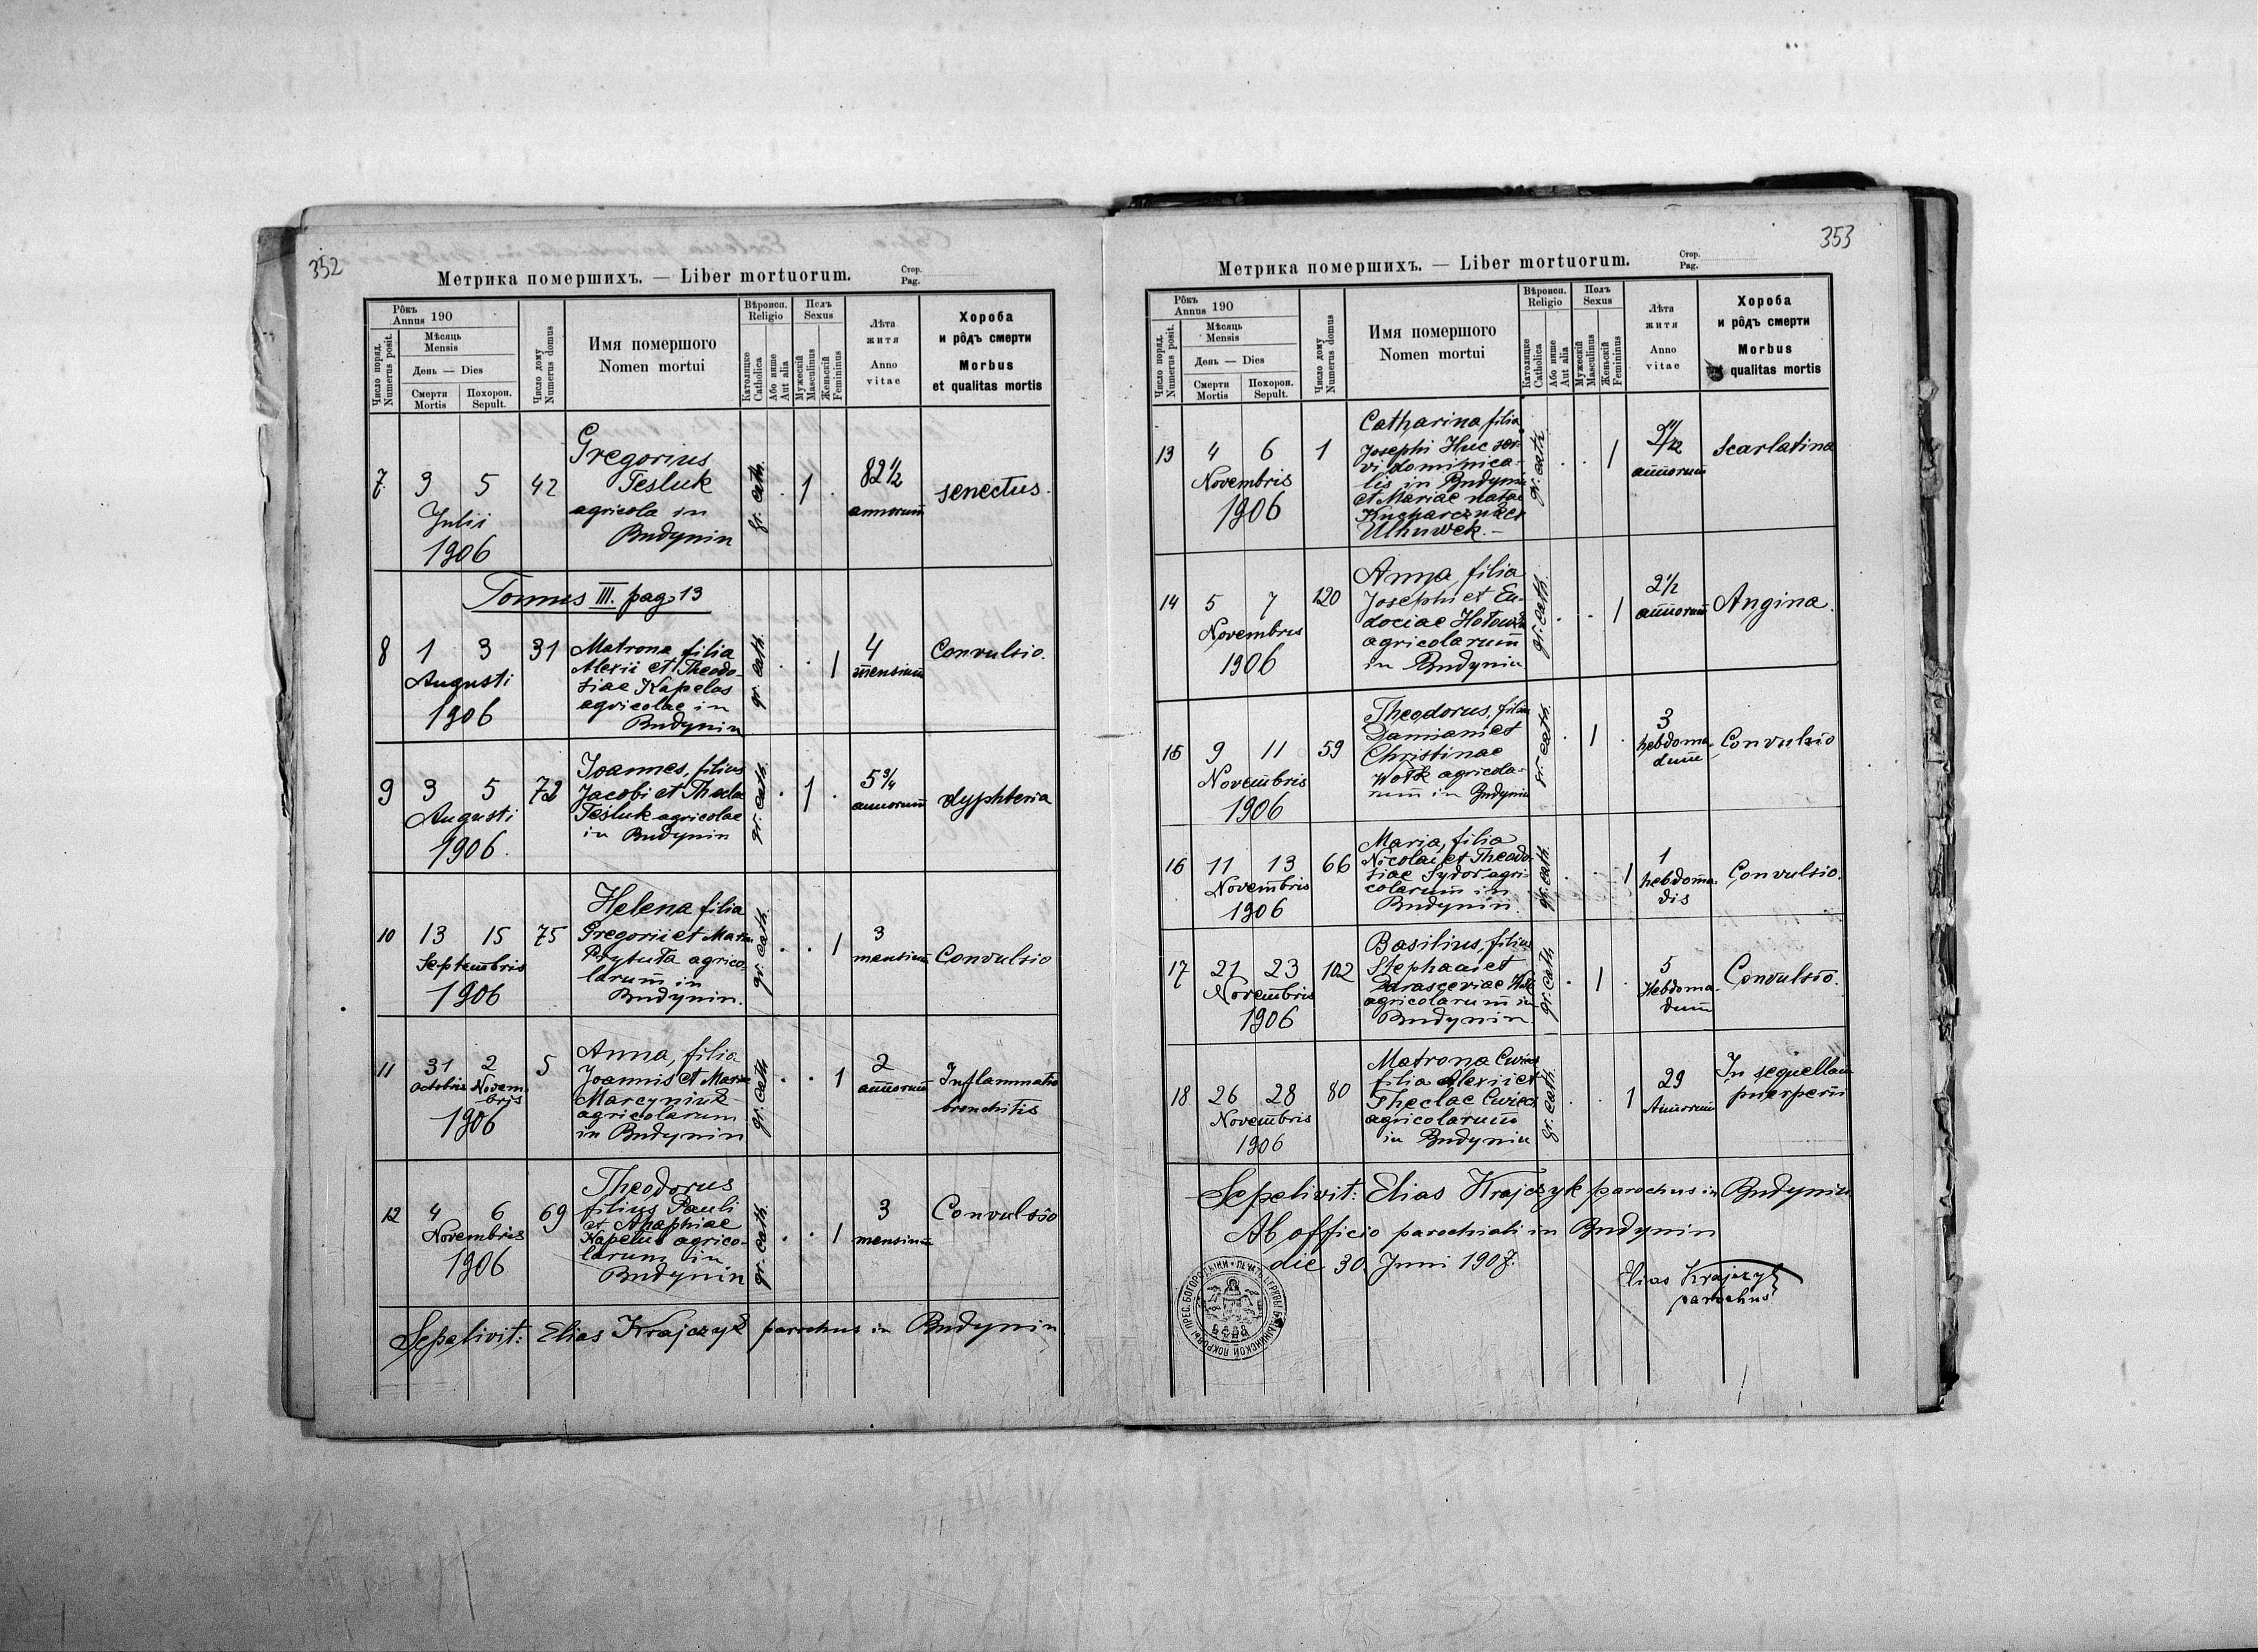 352
Метрика помершихъ. — Liber mortuorum.
Стор.
Pag.
Рôкъ
Annus 190
Число поряд.
Numerus posit.
Мѣсяць
Mensis
День — Dies
Смерти
Mortis
Похорон.
Sepult.
Число дому
Numerus domus
Имя помершого
Nomen mortui
Вѣроисп.
Religio
Католицке
Catholica
Або инше
Aut alia
Полъ
Sexus
Мужескій
Masculinus
Женьскій
Femininus
Лѣта
житя
Anno
vitae
Хороба
и рôдъ смерти
Morbus
et qualitas mortis
7 3 5 42
Julii
1906
Gregorius
Tesluk
agricola in
Budynin
gr. cath.
. 1 .
82 1/2
annorum
senectus.
Tomus III. pag. 13
8 1 3 31
Augusti
1906
Matrona, filia
Alexii et Theodo-
siae Kapelas
agricolae in
Budynin
gr. cath.
. . 1
4
mensium
Convulsio.
9 3 5 72
Augusti
1906.
Joannes, filius
Jacobi et Theclae
Tesluk agricolae
in Budynin
gr. cath.
. 1 .
5 3/4
annorum
dyphteria
10 13 15 75
Septembris
1906
Helena filia
Gregorii et Mariae
Prytuła agrico-
larum in
Budynin.
gr. cath.
. . 1
3
mensium
Convulsio
11 31 2 5
Octobris Novem-
bris
1906
Anna, filia
Joannis et Mariae
Marcyniuk
agricolarum
in Budynin
gr. cath
. . 1
2
annorum
Inflammatio
bronchitis
12 4 6 69
Novembris
1906
Theodorus
filius Pauli
et Ahaphiae
agrico-
larum in
Budynin
gr. cath.
. . 1
3
mensium
Convulsio
Sepelivit: Elias Krajczyk parochus in Budynin
353
Метрика помершихъ. — Liber mortuorum.
Стор.
Pag.
Рôкъ
Annus 190
Число поряд.
Numerus posit.
Мѣсяць
Mensis
День — Dies
Смерти
Mortis
Похорон.
Sepult.
Число дому
Numerus domus
Имя помершого
Nomen mortui
Вѣроисп.
Religio
Католицке
Catholica
Або инше
Aut alia
Полъ
Sexus
Мужескій
Masculinus
Женьскій
Femininus
Лѣта
житя
Anno
vitae
Хороба
и рôдъ смерти
Morbus
qualitas mortis
13 4 6 1
Novembris
1906
Catharina, filia
Josephi Huc ser-
vi dominica-
lis in Budynin
et Mariae natae
Kucharczuk ex
Ulhuwek.-
gr. cath.
. . 1
annorum
Scarlatina
14 5 7 120
Novembris
1906
Anna, filia
Josephi et Eu-
dociae
agricolarum
in Budynin
gr. cath.
. . 1
2 1/2
annorum
Angina.
15 9 11 59
Novembris
1906
Theodorus, filius
Damiani et
Christinae
agricola-
rum in Budynin
gr. cath.
. 1 .
3
hebdoma-
dum
Convulsio
16 11 13 66
Novembris
1906
Maria, filia
Nicolai et Theodo-
siae Sydor agri-
colarum in
Budynin.
gr. cath.
. . 1
1
hebdoma-
dis
Convulsio.
17 21 23 102
Novembris
1906
Basilius, filius
Stephani et
Parasceviae
agricolarum in
Budynin.
gr. cath
. 1 .
5
Hebdoma-
dum
Convulsio.
18 26 28 80
Novembris
1906
Matrona
filia Alexii et
Theclae
agricolarum
in Budynin
gr. cath.
. . 1
29
Annorum
In sequellam
puerperii
Sepelivit: Elias Krajczyk parochus in Budynin
Ab officio parochiali in Budynin
die 30. Juni 1907.
Elias Krajczyk
parochus